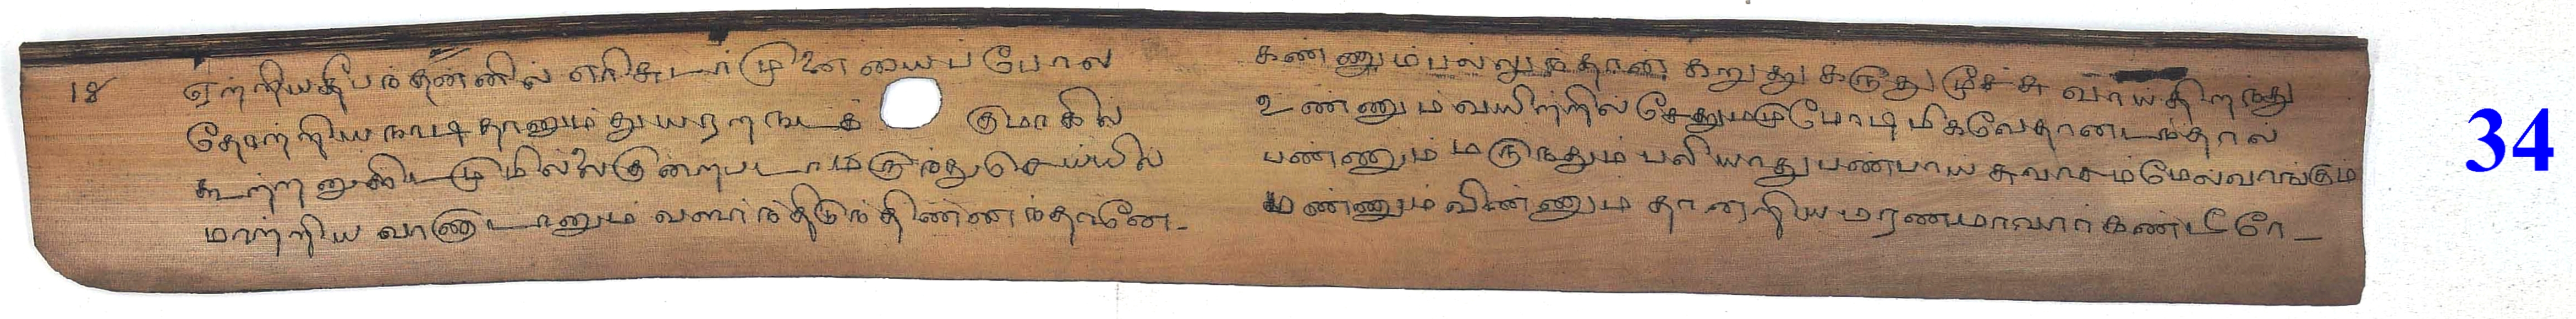 18
ஏற்றியதீபந்தன்னில் எரிசுடர்முனையைப்போல
தோற்றியநாடிதானும் துயரறநடக் குமாகில்
கூற்றனுகிட முமில்லைகுன்றிடாமருந்துசெய்யில்
மாற்றிய வானுடானும் வளர்ந்திடுந்திண்ணந்தானே-
கண்ணும்பல்லுந்தான் கறுதுகருதுமூச்சு வாய்திறந்து
உண்ணும் வயிற்றில்சேனுமுமோடி மிகவேதானடந்தால
பண்ணும் மருந்தும் பலியாதுபண்பாய் சுவாசம்மேல்வாங்கும்
மண்ணும்விண்ணும் தானறியமரணமாவார்கண்டீரே-
34